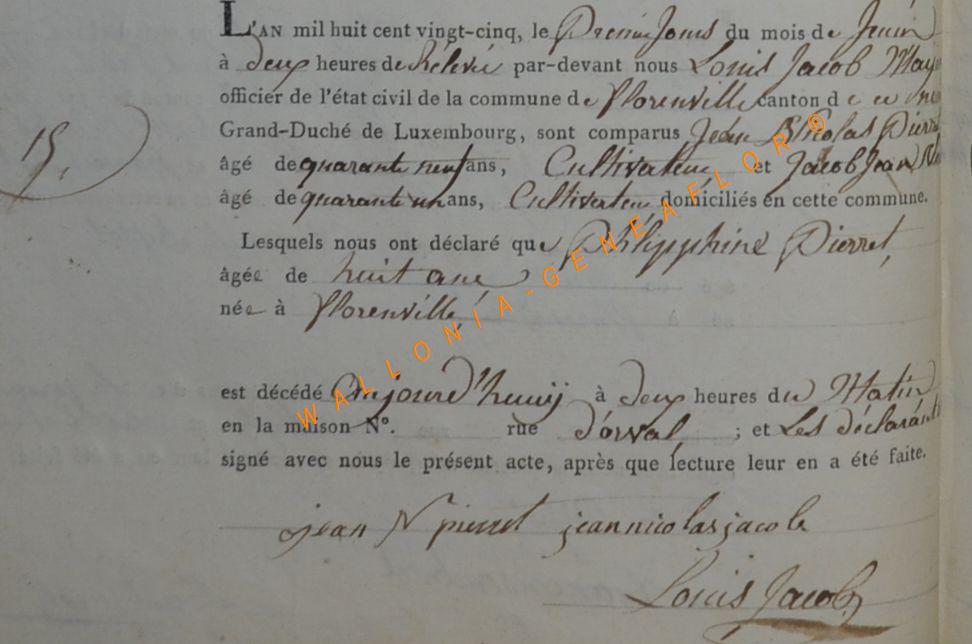 15.
L'AN mil huit cent vingt-cinq, le Premier Jour du mois de Juin
à deux heures de Rélevée par-devant nous Louis Jacob May
officier de l'état civil de la commune de florenville canton d
Grand-Duché de Luxembourg, sont comparus Jean Nicolas Pierret
âgé de quarante neuf ans, Cultivateur et Jacob Jean Ni
âgé de quarante un ans, Cultivateur domiciliés en cette commune.
Lesquels nous ont déclaré que Philipphine Pierret,
âgée de huit ans
née à florenville,
est décédé Aujourd'huij à deux heures du Matin
en la maison N°. rue d'orval, ; et Les déclarants
signé avec nous le présent acte, après que lecture leur en a été faite.
jean N pierret jeannicolas jacob
Louis Jacob
WALLONIA-GENEAFLOR ©